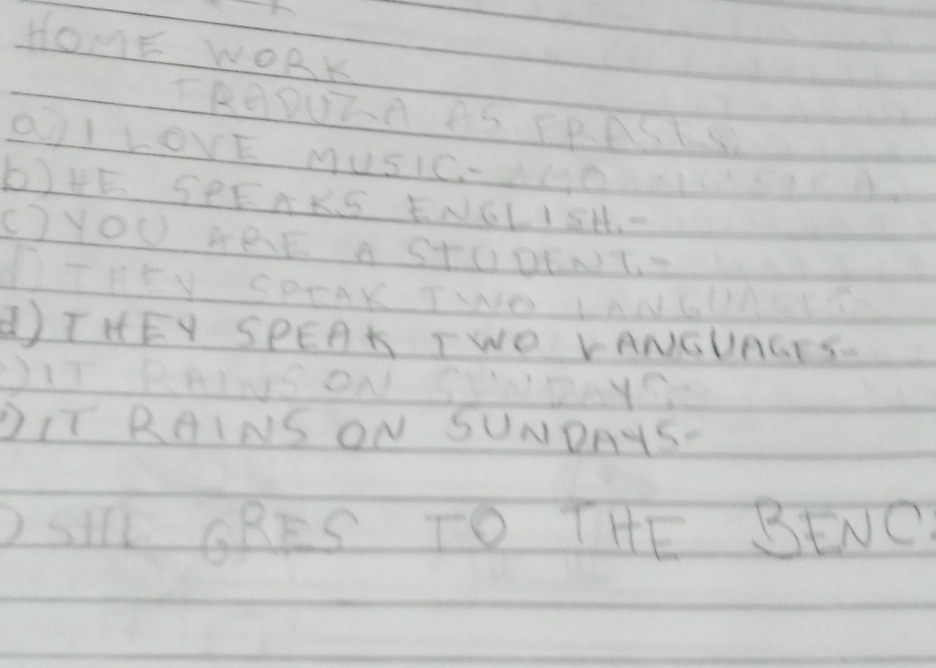 HOME WORK
TRADUZA AS FRASES.
a) I LOVE MUSIC.-
b) HE SPEAKS ENGLISH.-
c) YOU ARE A STUDENT.-
d) THEY SPEAK TWO LANGUAGES-
d) THEY SPEAK TWO LANGUAGES-
) IT RAINS ON SUNDAYS-
) IT RAINS ON SUNDAYS-
) SHE GRES TO THE BENC